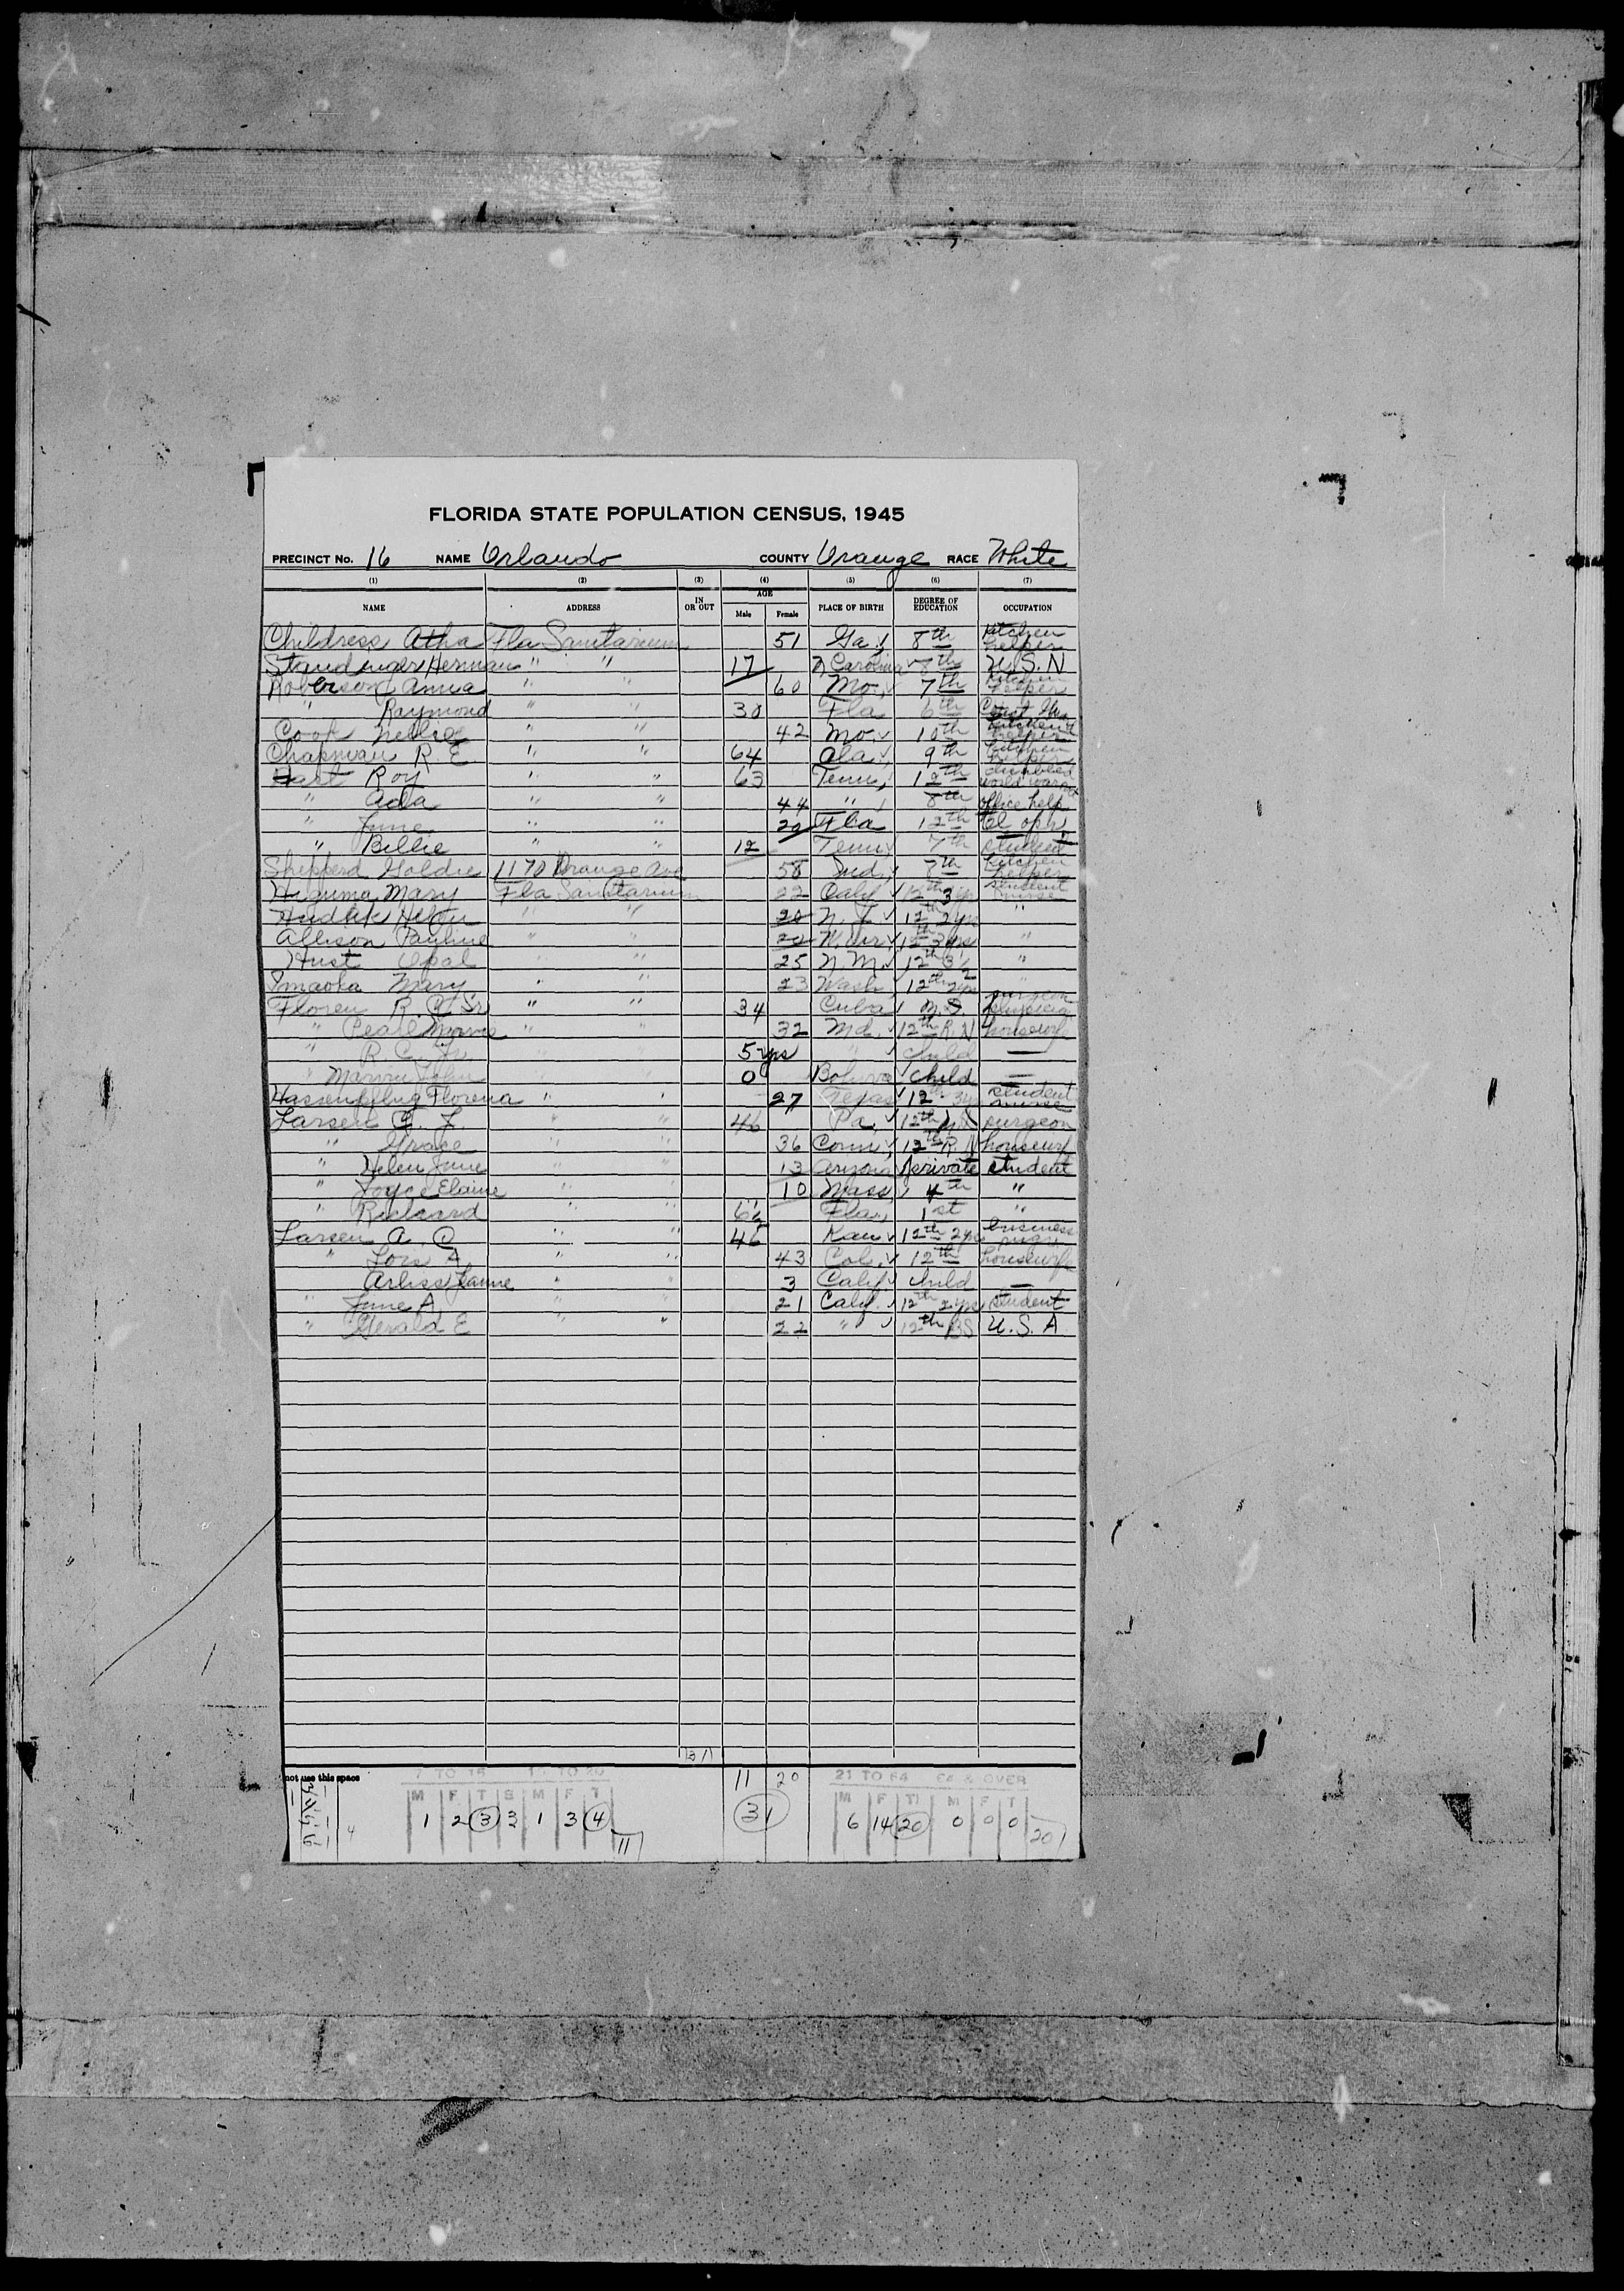 FLORIDA STATE POPULATION CENSUS, 1945
PRECINCT No. 16 NAME Orlando COUNTY Orange RACE White
(1) (2) (3) (4) (5) (6) (7)
NAME ADDRESS IN OR OUT AGE Male Female PLACE OF BIRTH DEGREE OF EDUCATION OCCUPATION
Childress Atha Fla Sanitarium 51 Ga. 8th Kitchen helper
Herman " " 17 N Carolina 8th U.S.N
Roberson Anna " " 60 Mo. 7th Kitchen helper
" Raymond " " 30 Fla 6th
Cook Nellie " " 42 Mo. 10th Kitchen helper
Chapman R. E " " 64 Ala. 9th Kitchen helper
Hast Roy " " 63 Tenn. 12th disabled world war
" Ada " " 44 " 8th office help
" June " " 20 Fla 12th Tel opr
" Billie " " 12 Tenn 7th student
Shepperd Goldie 1170 Orange Ave 58 Ind. 8th Kitchen helper
Higuma Mary Fla Sanitarium 22 Calif 12th 3yr student nurse
Helen " " 20 N. J. 12th 2yrs "
Allison Pauline " " 20 W. Vir. 12th 2yrs "
Hust Opal " " 25 N. M. 12th 3½ "
Imaoka Mary " " 23 Wash 12th 2yrs "
Floren R. C. Sr " " 34 Cuba M.D. surgeon physician
" Pearl Marie " " 32 Md. 12th R.N housewife
" R. C. Jr " " 5 yrs " child —
" Marvin John " " 0 Bolivia child —
Hassenpflug Florena " " 27 Texas 12 3yr student nurse
Larsen C. F. " " 46 Pa. 12th M.D surgeon
" Grace " " 36 Conn. 12th R.N housewf
" Helen June " " 13 Arizona private student
" Joyce Elaine " " 10 Mass. 4th "
" Richard " " 6½ Fla. 1st "
Larsen A. C " " 46 Kan 12th 2yr business mgr
" Lois A " " 43 Col. 12th housewife
Arliss Jeanne " " 3 Calif child —
" June A. " " 21 Calif. 12th 2yrs student
" Gerald E " " 22 " 12th BS U.S.A.
not use this space 7 TO 15 16 TO 20 11 20 21 TO 64 64 & OVER
M F T S M F T M F T M F T
1 2 3 3 1 3 4 31 6 14 20 0 0 0
11 20